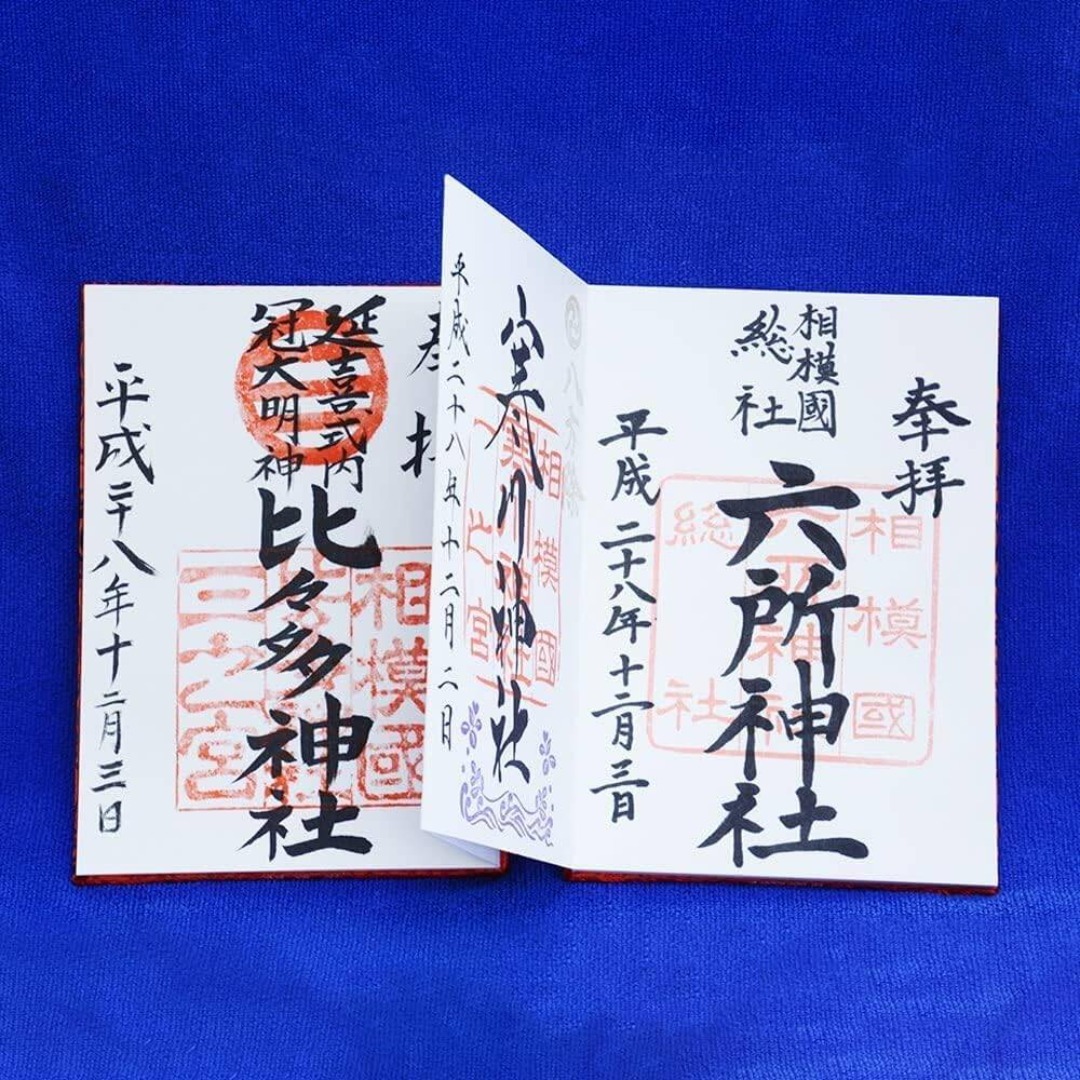 奉拝
相模國
総社
六所神社
平成二十八年十二月三日
相模國
六所神社
総社
八方除
寒川神社
相模國
寒川神社
一之宮
平成二十八年十二月二日
奉拝
延喜式内
冠大明神
比々多神社
相模國
三之宮
平成二十八年十二月三日